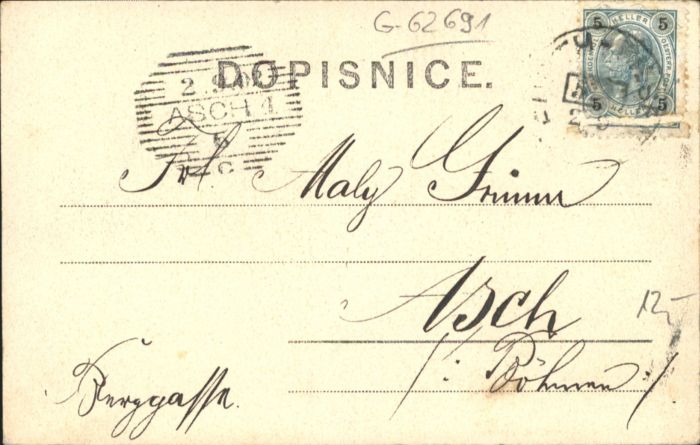 G-62691
5 HELLER 5
5 HELLER 5
DOPISNICE.
ASCH 1
Frl. Maly Grimm
Asch
12-
/: Böhmen :/
Berggasse.